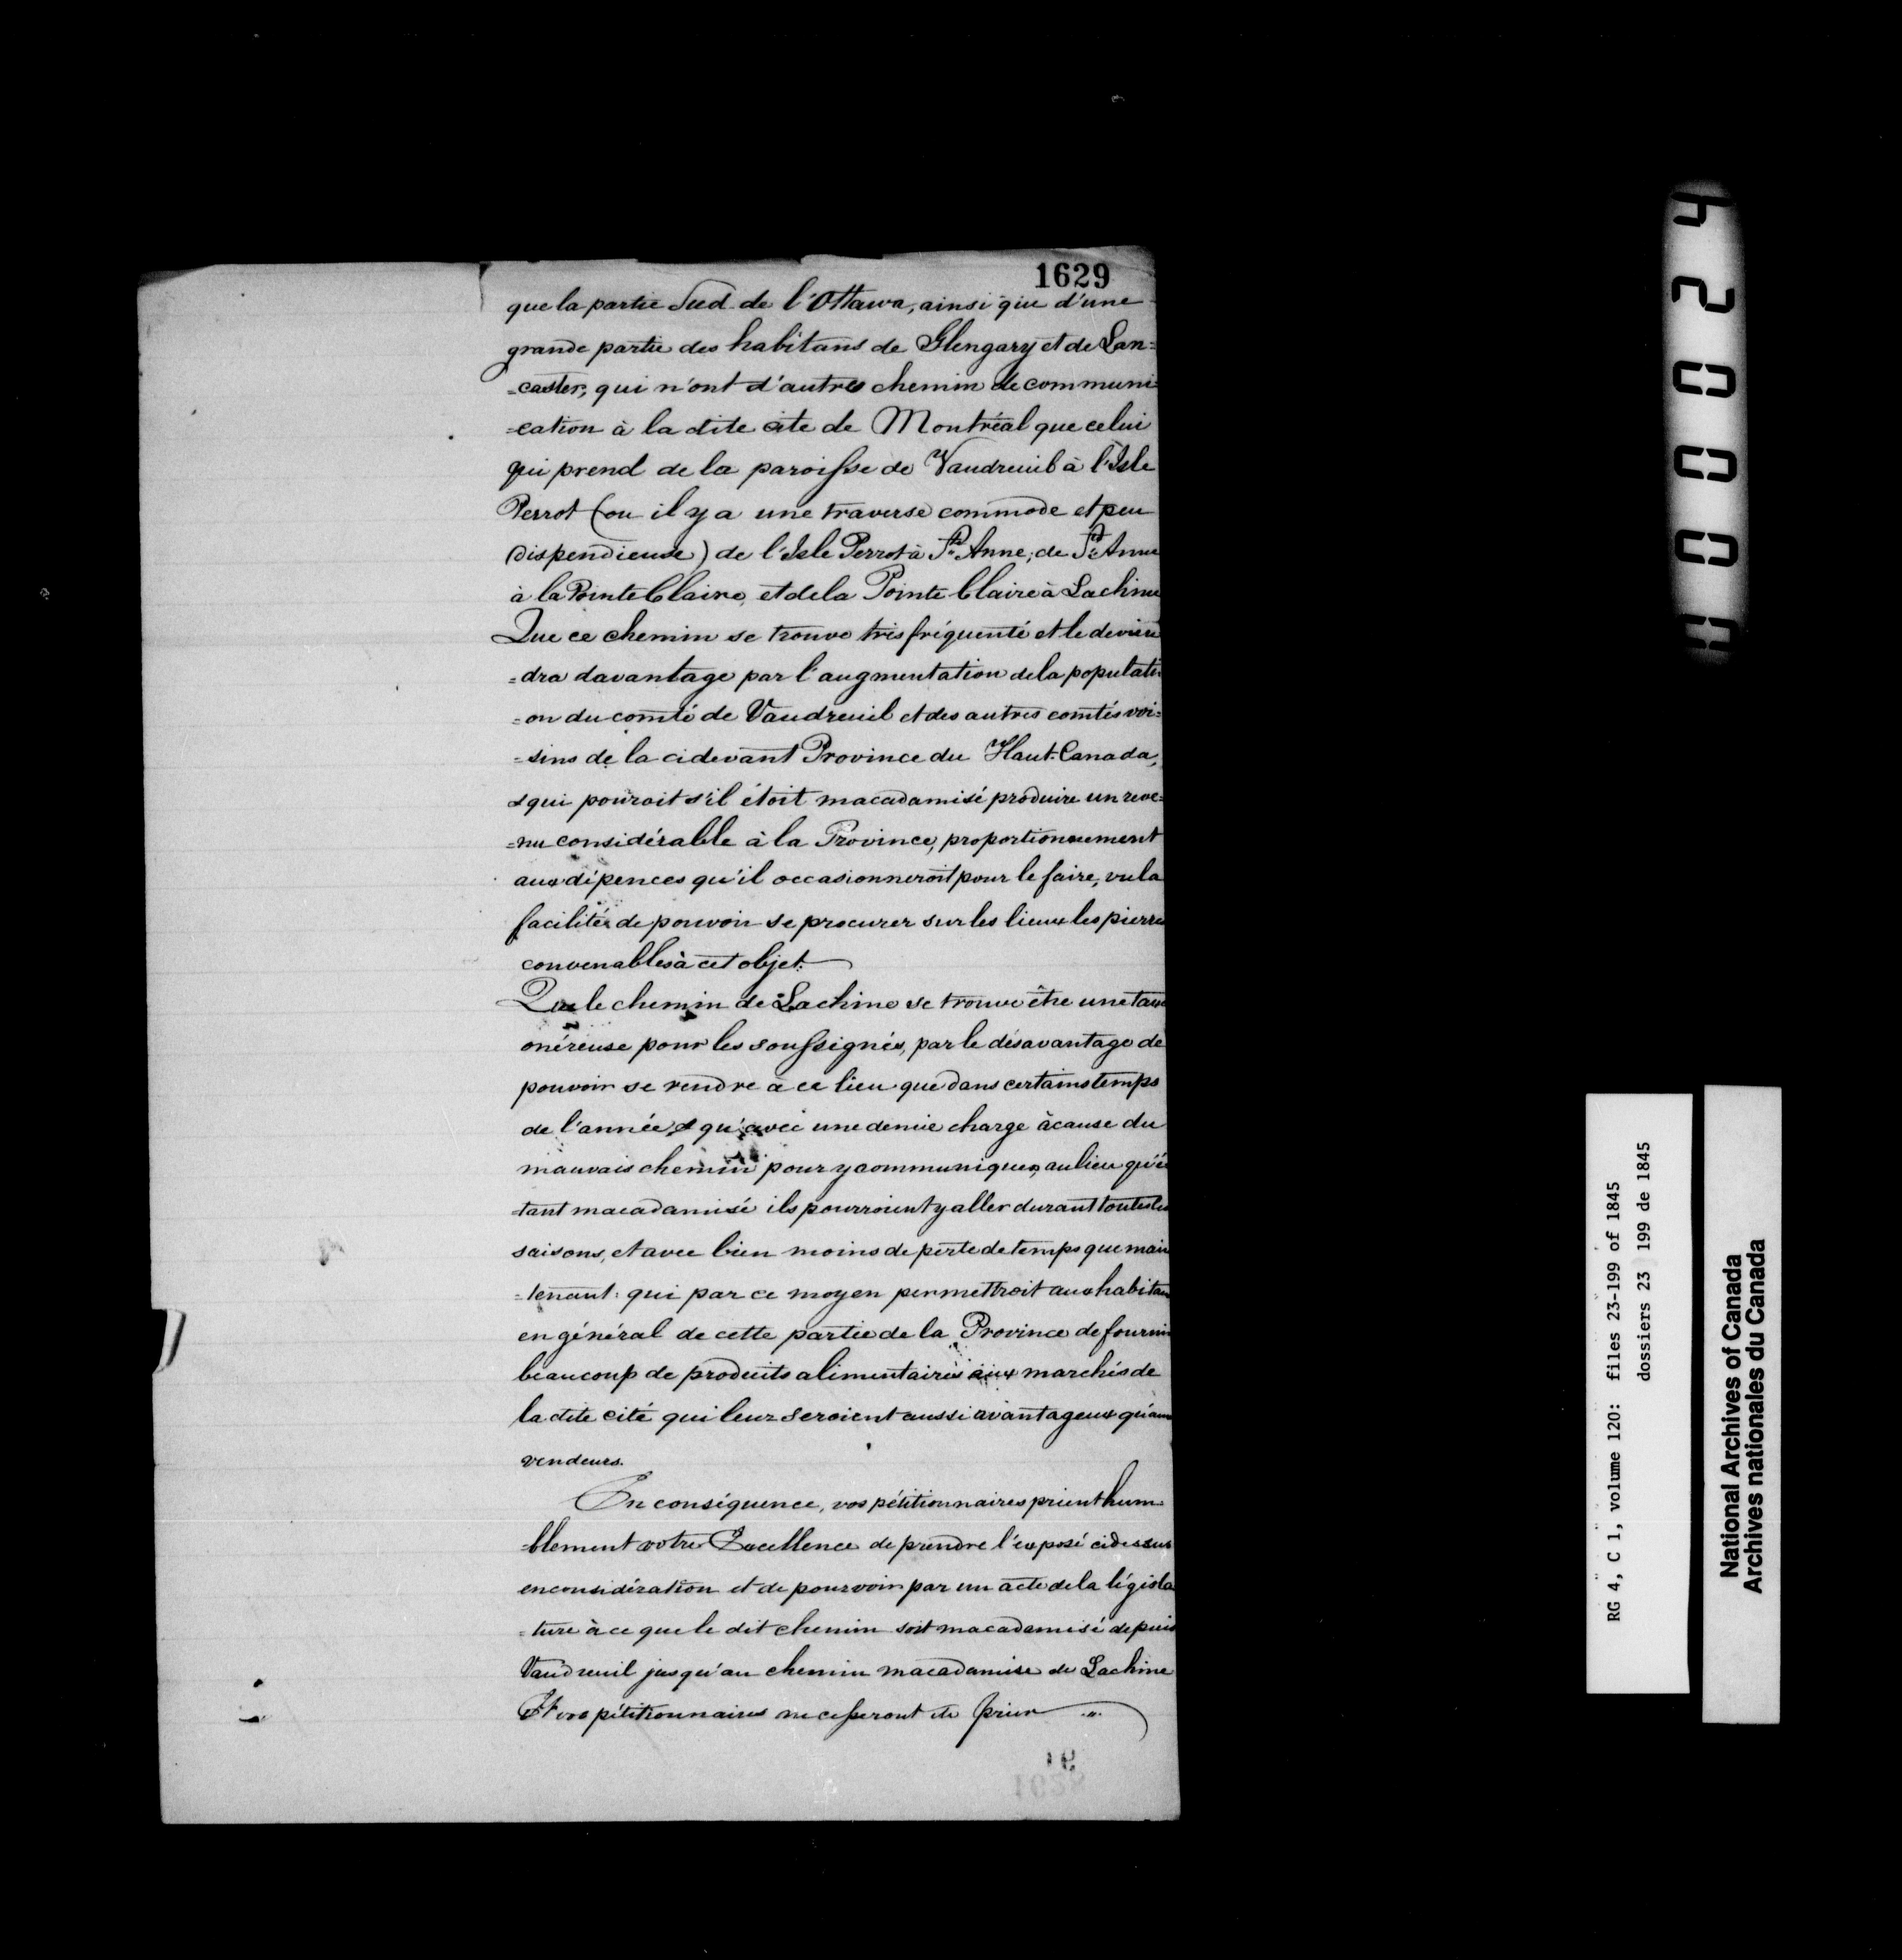 1629
que la partie Sud de l'Ottawa, ainsi que d'une
grande partie des habitans de Glengary et de Lan=
=caster, qui n'ont d'autres chemin de communi=
=cation à la dite cite de Montréal que celui
qui prend de la paroisse de Vaudreuil à l'Isle
Perrot (ou il y a une traverse commode et peu
dispendieuse) de l'Isle Perrot à Ste Anne, de Ste Anne
à la Pointe Claire, et de la Pointe Claire à Lachine
Que ce chemin se trouve très fréquenté et le devien
=dra davantage par l'augmentation de la populati
=on du comté de Vaudreuil et des autres comtés voi=
=sins de la cidevant Province du Haut-Canada,
& qui pouroit s'il étoit macadamisé produire un reve=
=nu considérable à la Province, proportionnement
aux dépences qu'il occasionneroit pour le faire, vu la
facilité de pouvoir se procurer sur les lieux les pierre
convenables à cet objet.
Que le chemin de Lachine se trouve être une taxe
onéreuse pour les soussignés, par le désavantage de
pouvoir se rendre à ce lieu que dans certains temps
de l'année & qu'avec une demie charge à cause du
mauvais chemin pour y communiquer, au lieu qu'é
tant macadamisé ils pourroient y aller durant toutes les
saisons, et avec bien moins de perte de temps que main
=tenant: qui par ce moyen permettroit aux habitans
en général de cette partie de la Province de fournir
beaucoup de produits alimentaires aux marchés de
la dite cité qui leur seroient aussi avantageux qu'aux
vendeurs.
En conséquence, vos pétitionnaires prient hum
=blement votre Excellence de prendre l'exposé cidessus
en considération et de pourvoir par un acte de la législa
=ture à ce que le dit chemin soit macadamisé depuis
Vaudreuil jusqu'au chemin macadamise de Lachine
Et vos pétitionnaires ne cesseront de prier
RG 4, C 1, volume 120: files 23-199 of 1845
dossiers 23 199 de 1845
National Archives of Canada
Archives nationales du Canada